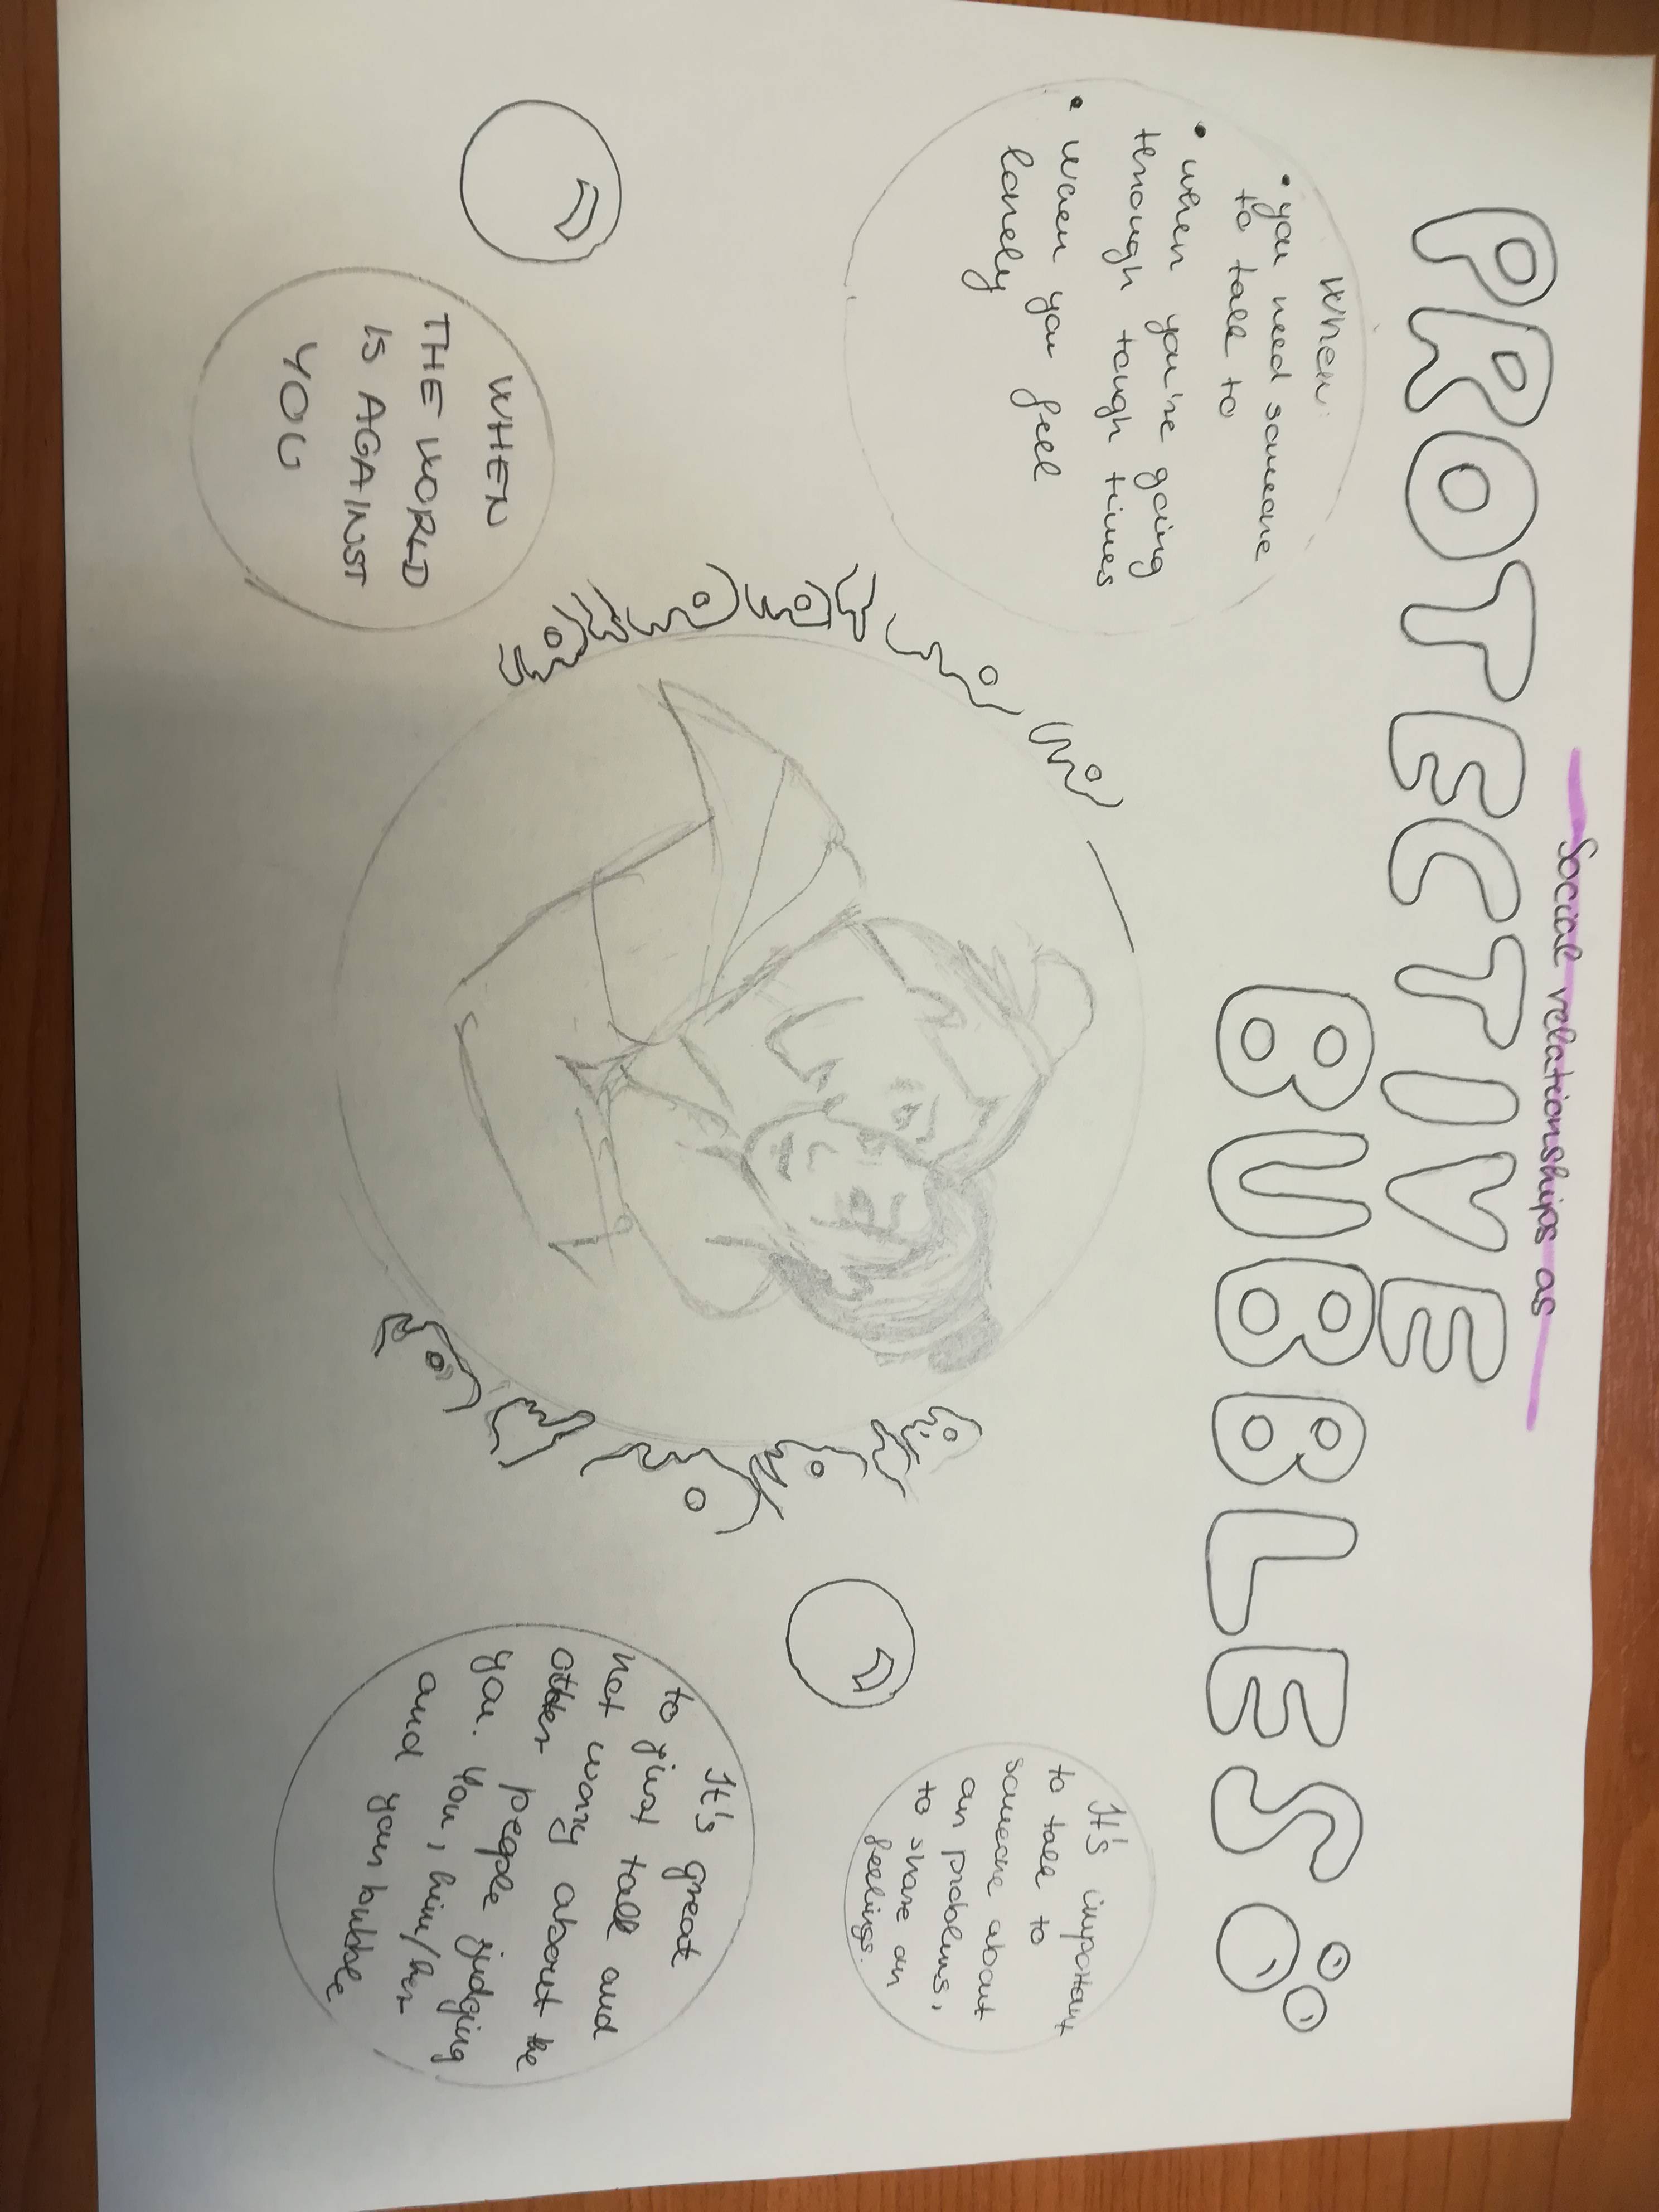 Social relationships as
PROTECTIVE
BUBBLES
When:
• you need someone
to talk to
• when you're going
through tough times
• when you feel
lonely
WHEN
THE WORLD
IS AGAINST
YOU
It's important
to talk to
someone about
our problems,
to share our
feelings.
It's great
to just talk and
not worry about the
other people judging
you. You, him/her
and your bubble